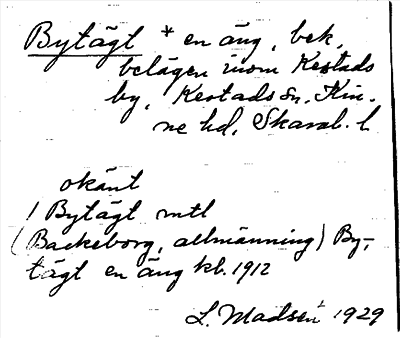 Bytägt * en äng, bek.
belägen inom Kestads
by, Kestads sn. Kin-
ne hd, Skarab. l
okänt
1 Bytägt mtl
(Backeborg, allmänning) By-
tägt en äng kb. 1912
L. Madsén 1929